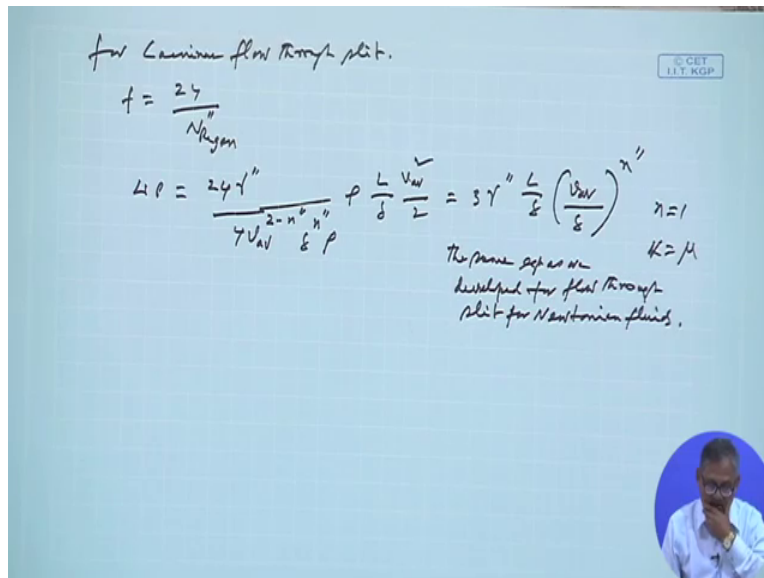 for Laminar flow through slit.
© CET
I.I.T. KGP
f = 24 / N''Regen
ΔP = 24γ'' / 4Vav^(2-n'') δ^n'' ρ ρ L/δ Vav²/2 = 3γ'' L/δ (Vav/δ)^n''
n=1
K=μ
The same eqn as we
developed for flow through
slit for Newtonian fluids.